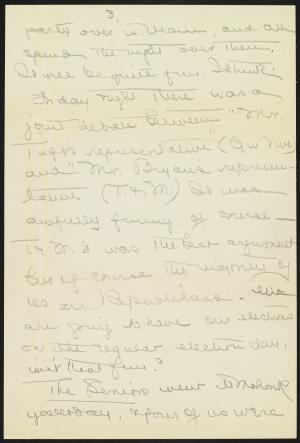 3.
party over in Main, and all
spend the night over there.
It will be quite fun, I think.
Friday night there was a
joint debate between "Mr.
Taft's representative" (
and "Mr. Bryan's represen-
tative" (T. & M.) It was
awfully funny of course —
T & M.'s was the best argument
but of course the majority of
us are Republicans.
are going to have our elections
on the regular election day,
isn't that fun?
The Seniors went to Mohonk
yesterday, & four of us were